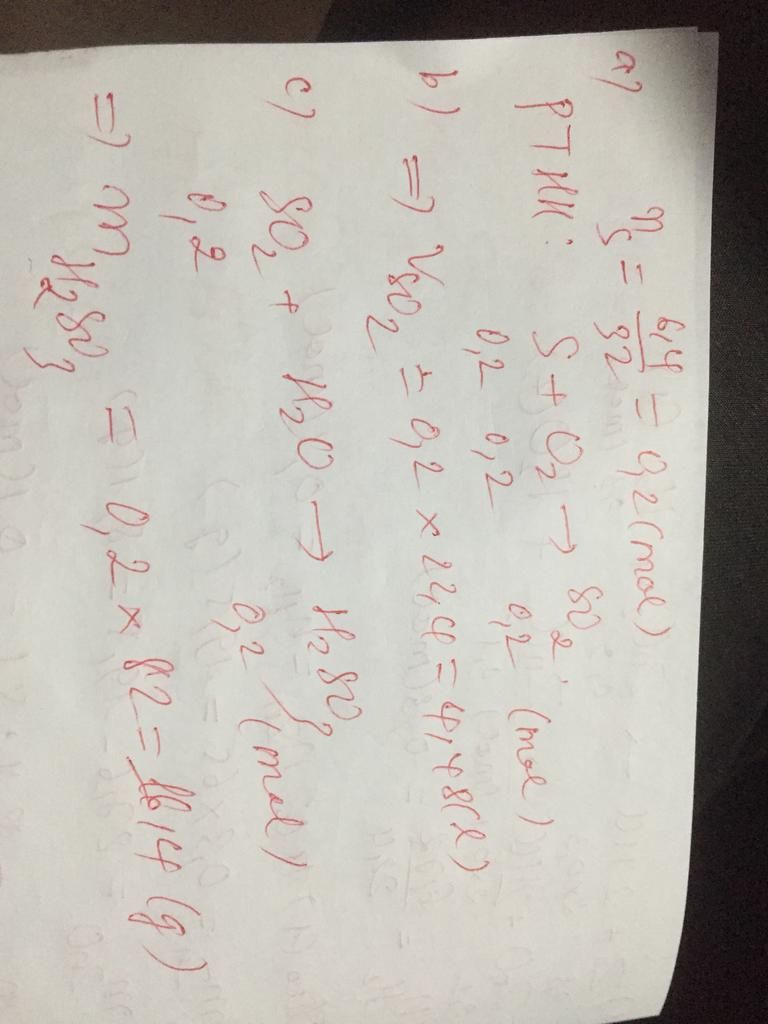 a) nS = 6,4/32 = 0,2 (mol)
PTHH: S + O2 → SO2
0,2 0,2 0,2 (mol)
b) => VSO2 = 0,2 × 22,4 = 4,48 (l)
c) SO2 + H2O → H2SO3
0,2 0,2 (mol)
=> mH2SO3 = 0,2 × 82 = 16,4 (g)